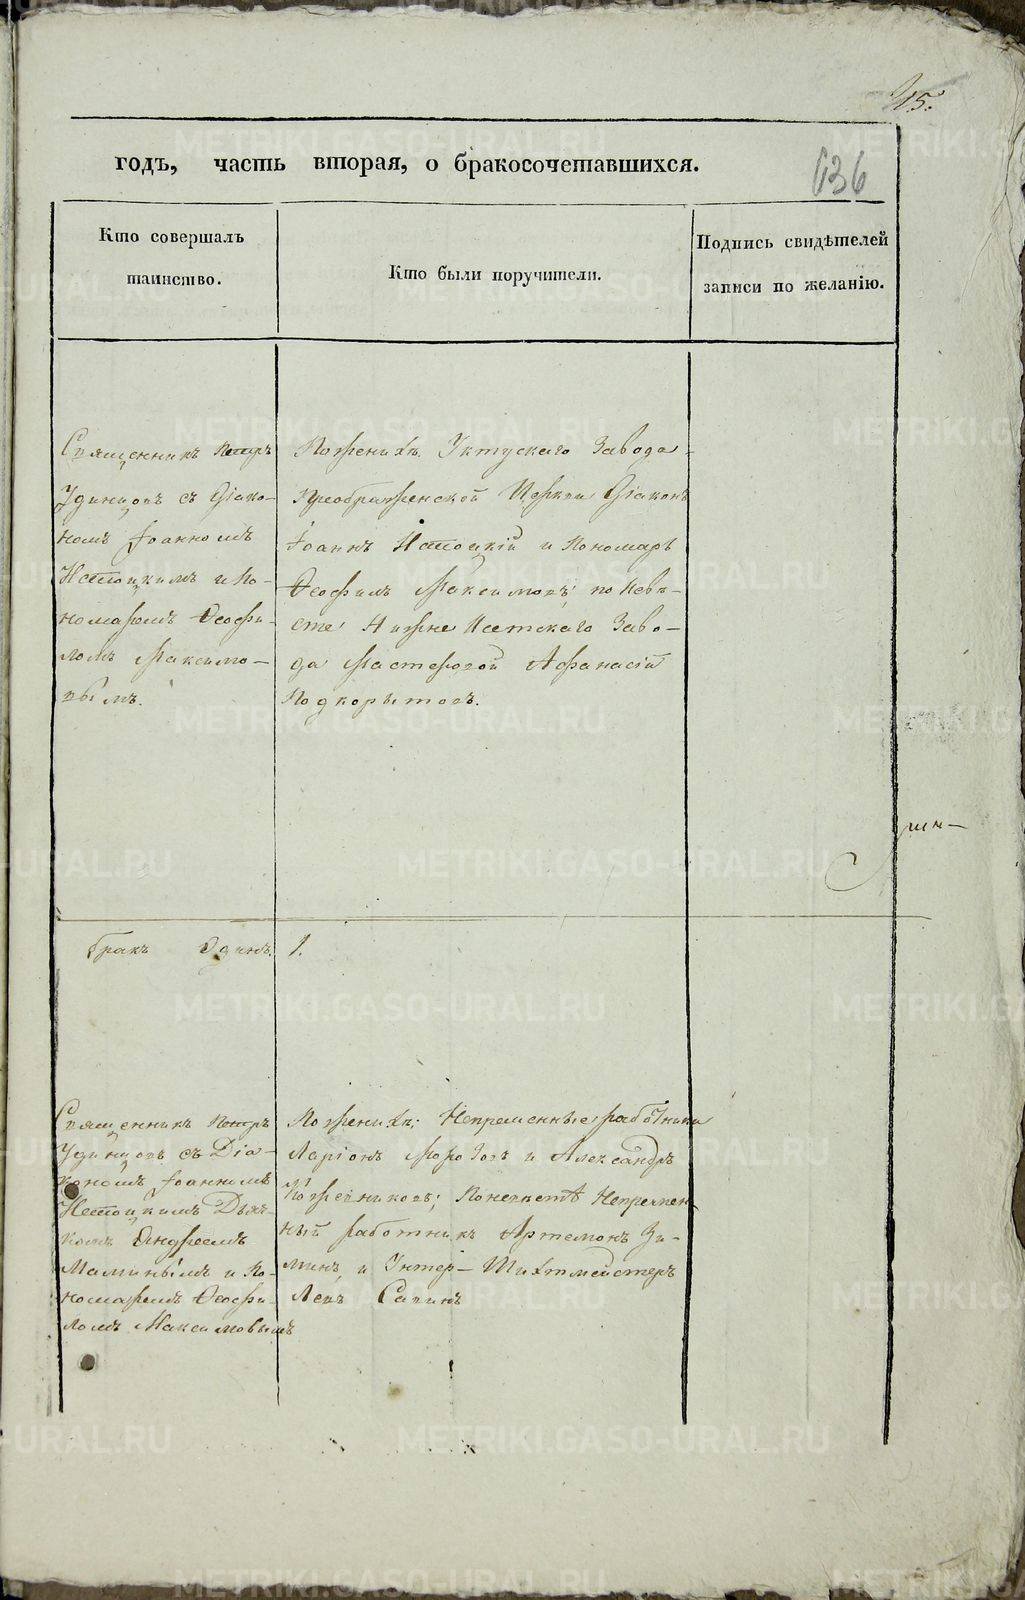 45.
годъ, часть вторая, о бракосочетавшихся.
636
Кто совершалъ
таинство.
Кто были поручители.
Подпись свидѣтелей
записи по желанію.
Священникъ Петръ
Удинцовъ съ Діако-
номъ Іоанномъ
и По-
номаремъ Ѳеофи-
ломъ Максимо-
вымъ.
По женихѣ: Уктускаго Завода
Преображенской Церкви Діаконъ
Іоаннъ и Пономарь
Ѳеофилъ Максимовъ; по Невѣ-
стѣ: Нижне Исетскаго Заво-
да Мастеровой Аѳанасій
Подкорытовъ.
Бракъ Одинъ. 1.
Священникъ Петръ
Удинцовъ съ Діа-
кономъ Іоанномъ
Дьяч-
комъ Андреемъ
Маминымъ и По-
номаремъ Ѳеофи-
ломъ Максимовымъ
По женихѣ: Непременные работники
Ларіонъ Морозовъ и Александръ
Кожевниковъ; По невестѣ Непремен-
ный работникъ Артемонъ Зи-
минъ, и Унтер-Шихтмейстеръ
Левъ
METRIKI.GASO-URAL.RU